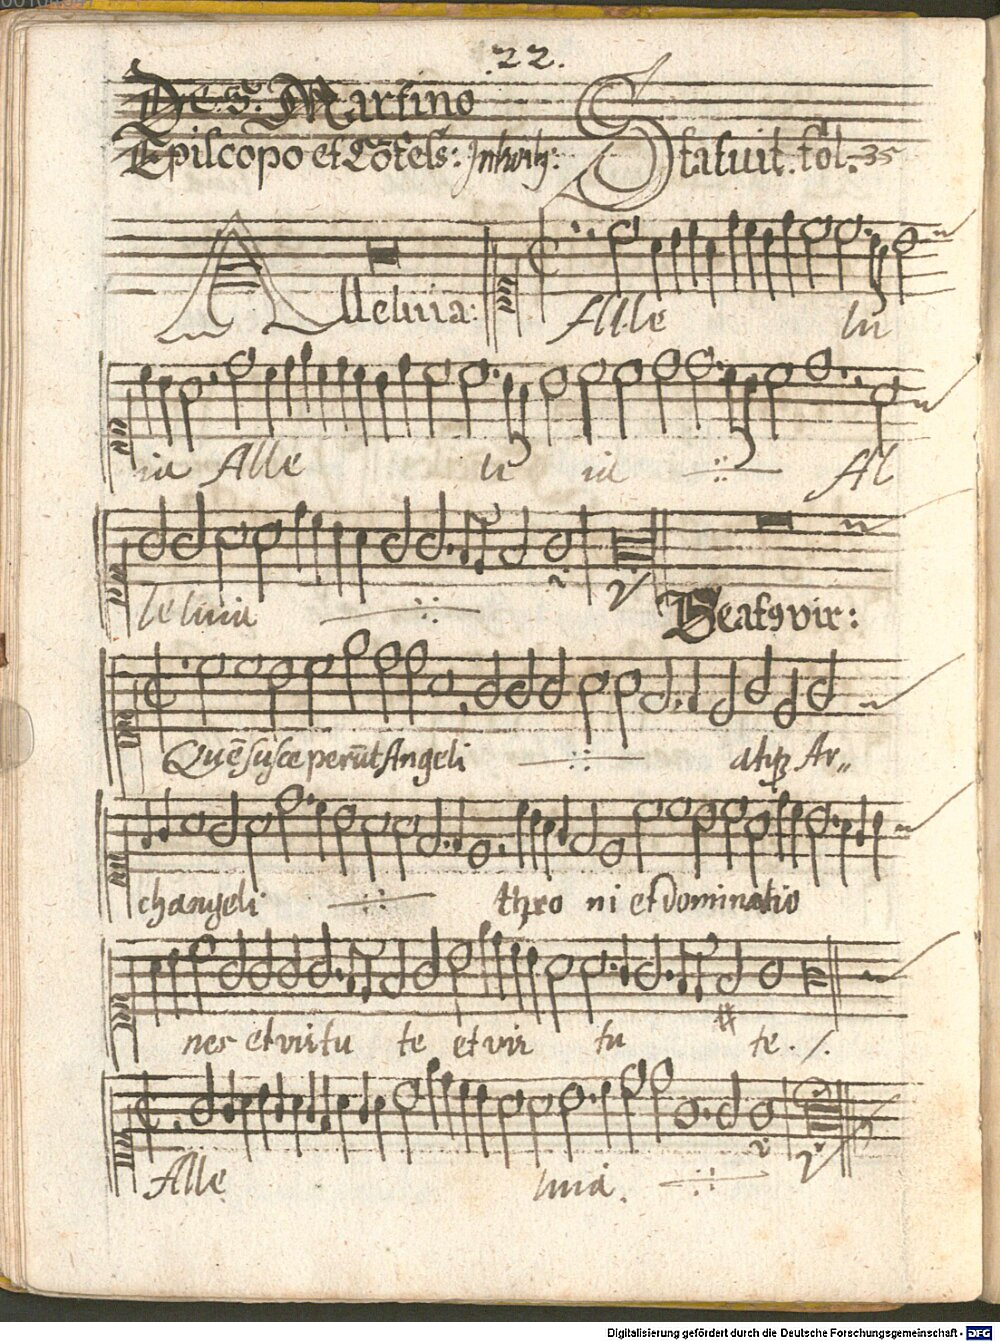 22.
De S. Martino
Episcopo et Cōfess: Introitꝫ: Statuit. fol. 35
Alleluia: Alle lu
ia Alle lu ia ·:· Al
leluia ·:· Beatꝯ vir:
Quē susceperūt Angeli ·:· atqꝫ Ar„
changeli ·:· thro ni et dominatio
nes et virtu te et vir tu te ./.
Alle luia. ·:·
Digitalisierung gefördert durch die Deutsche Forschungsgemeinschaft - DFG